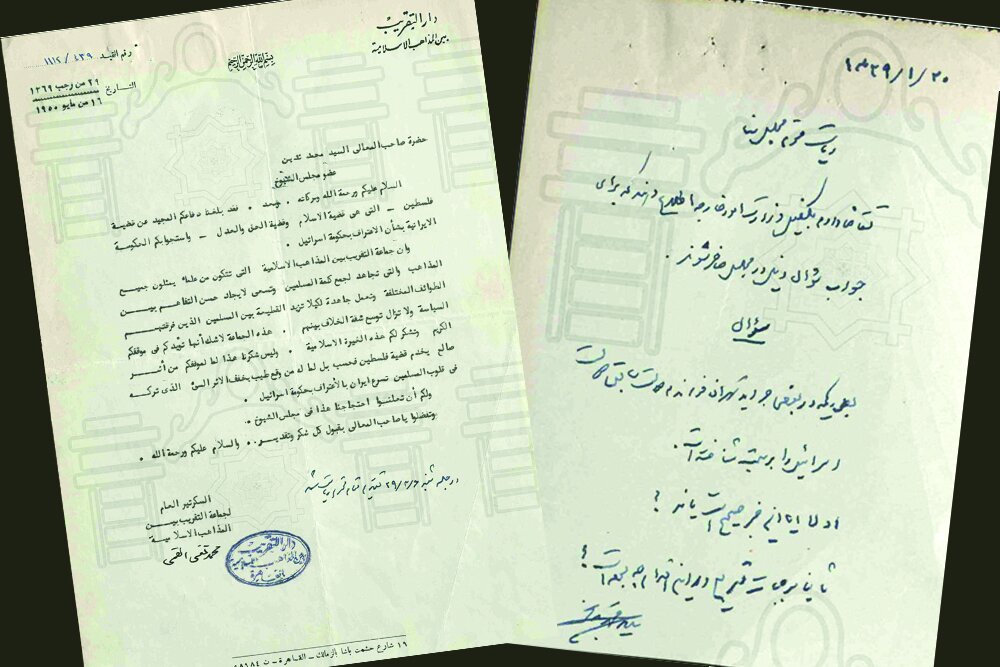 دار التقريب
بين المذاهب الاسلامية
بسم الله الرحمن الرحيم
رقم القيد ٤٣٩ / ١١١٢
التاريخ ٢٩ من رجب ١٣٦٩
١٦ من مايو ١٩٥٠
حضرة صاحب المعالى السيد محمد تدين
عضو مجلس الشيوخ
السلام عليكم ورحمة الله وبركاته . وبعد . فقد بلغنا دفاعكم المجيد عن قضية
فلسطين – التى هى قضية الاسلام وقضية الحق والعدل – واستجوابكم الحكومة
الايرانية بشأن الاعتراف بحكومة اسرائيل .
وان جماعة التقريب بين المذاهب الاسلامية التى تتكون من علماء يمثلون جميع
المذاهب والتى تجاهد لجمع كلمة المسلمين وتسعى لايجاد حسن التفاهم بين
الطوائف المختلفة وتعمل جاهدة لكيلا تزيد القطيعة بين المسلمين الذين فرقتهم
السياسة ولا تزال توسع شقة الخلاف بينهم . هذه الجماعة لاشك أنها تؤيدكم فى موقفكم
الكريم وتشكر لكم هذه الغيرة الاسلامية . وليس شكرنا هذا لما لموقفكم من أثر
صالح يخدم قضية فلسطين فحسب بل لما له من وقع طيب يخفف الاثر السئ الذى تركه
فى قلوب المسلمين تسرع ايران بالاعتراف بحكومة اسرائيل .
ولكم أن تعلنوا احتجاجنا هذا فى مجلس الشيوخ .
وتفضلوا ياصاحب المعالى بقبول كل شكر وتقدير .. والسلام عليكم ورحمة الله .
السكرتير العام
لجماعة التقريب بين
المذاهب الاسلامية
محمد تقى القمى
دار التقريب
بين المذاهب الاسلامية
القاهرة
١٩ شارع حشمت باشا بالزمالك – القاهرة – ت
١٣٢٩/١/٣٠
ریاست محترم مجلس سنا
تقاضا دارم بکفیل وزارت امور خارجه اطلاع دهند که برای
جواب سؤال ذیل در مجلس حاضر شوند .
سؤال
بطوریکه در بعضی جراید تهران خوانده‌ام دولت
اسرائیل را برسمیت شناخته است.
اولا این خبر صحیح است یا نه ؟
ثانیا